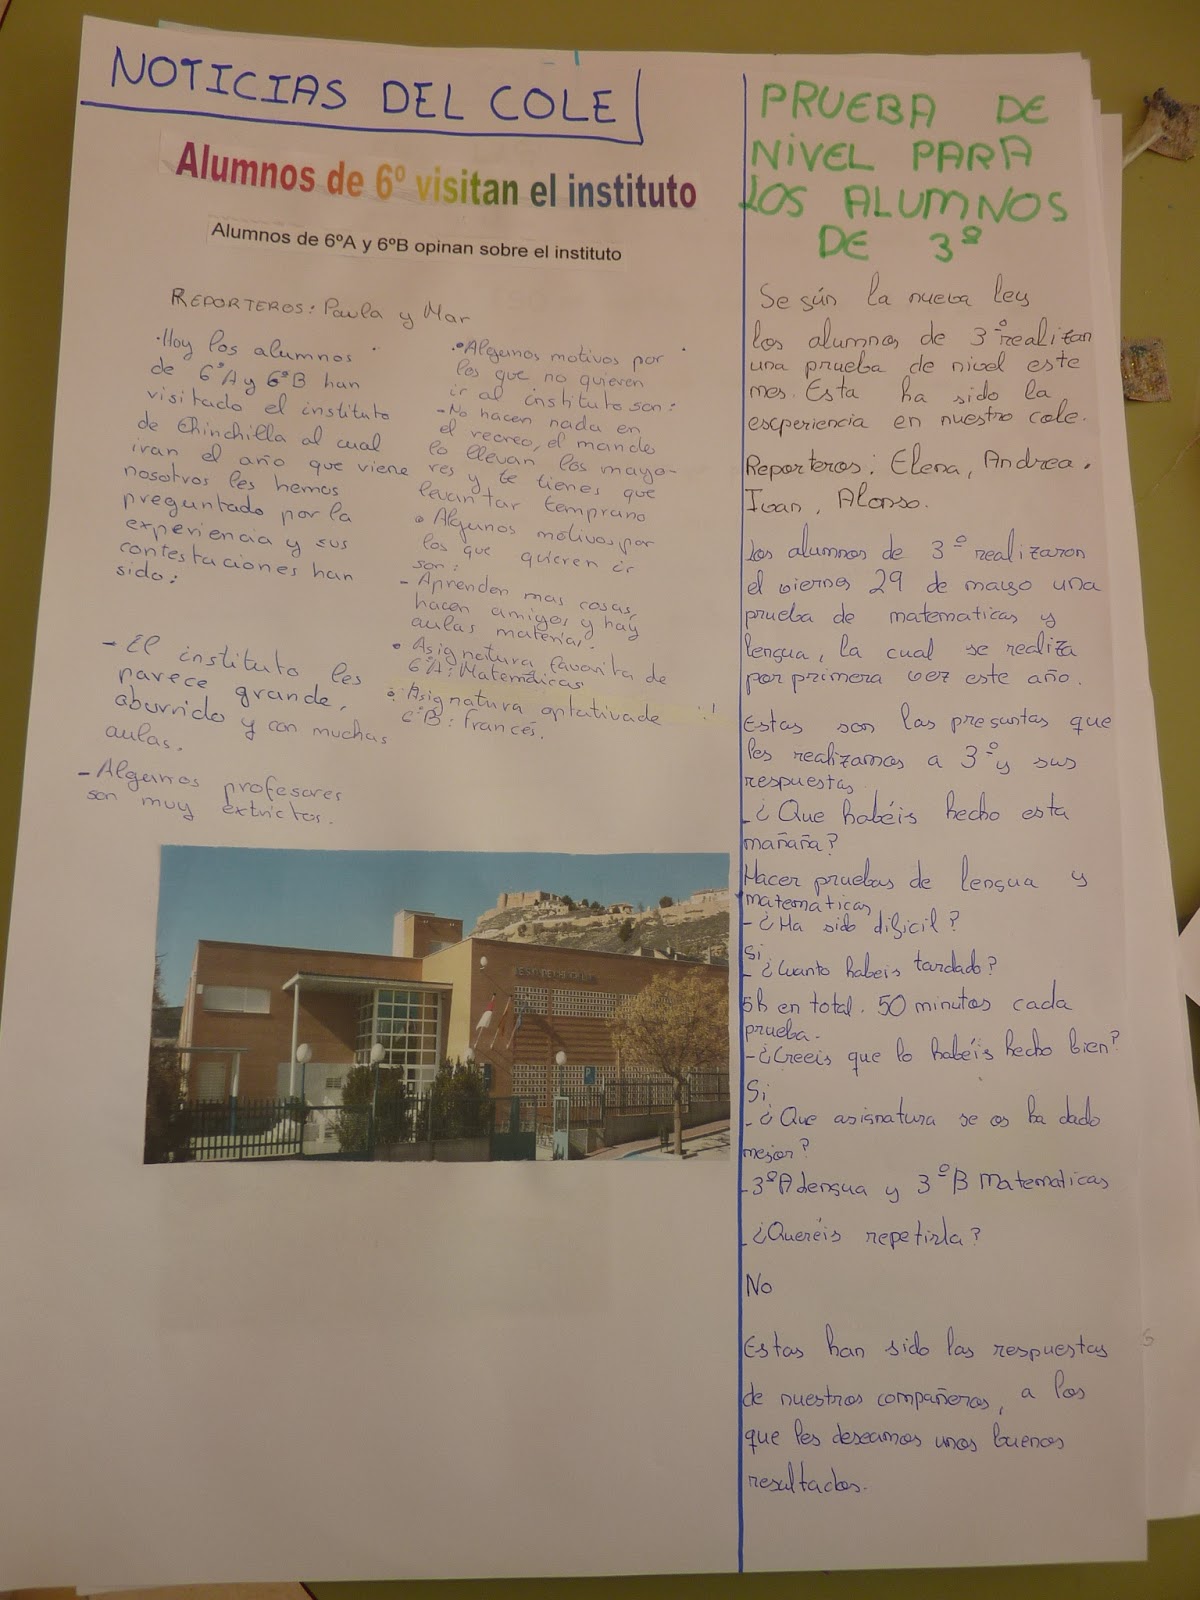 NOTICIAS DEL COLE
Alumnos de 6º visitan el instituto
Alumnos de 6ºA y 6ºB opinan sobre el instituto
REPORTEROS: Paula y Mar
·Hoy los alumnos
de 6ºA y 6ºB han
visitado el instituto
de Chinchilla al cual
iran el año que viene
nosotros les hemos
preguntado por la
experiencia y sus
contestaciones han
sido:
- El instituto les
parece grande,
aburrido y con muchas
aulas.
- Algunos profesores
son muy extrictos.
• Algunos motivos por
los que no quieren
ir al instituto son:
- No hacen nada en
el recreo, el mando
lo llevan los mayo-
res y te tienes que
levantar temprano
• Algunos motivos por
los que quieren ir
son:
- Aprenden mas cosas,
hacen amigos y hay
aulas materias.
• Asignatura favorita de
6ºA: Matemáticas
• Asignatura optativa de
6ºB: francés.
PRUEBA DE
NIVEL PARA
LOS ALUMNOS
DE 3º
Según la nueva ley
los alumnos de 3º realizan
una prueba de nivel este
mes. Esta ha sido la
escperiencia en nuestro cole.
Reporteros: Elena, Andrea,
Ivan, Alonso.
Los alumnos de 3º realizaron
el viernes 29 de mayo una
prueba de matematicas y
lengua, la cual se realiza
por primera vez este año.
Estas son las preguntas que
les realizamos a 3º y sus
respuestas
-¿Que habéis hecho esta
mañaña?
Hacer pruebas de lengua y
matemáticas
-¿Ha sido dificil?
Si
-¿Cuanto habeis tardado?
5h en total. 50 minutos cada
prueba.
-¿Creeis que lo habéis hecho bien?
Si
-¿Que asignatura se os ha dado
mejor?
-3ºA Lengua y 3ºB Matematicas
-¿Queréis repetirla?
No
Estas han sido las respuestas
de nuestros compañeros, a los
que les deseamos unos buenos
resultados.